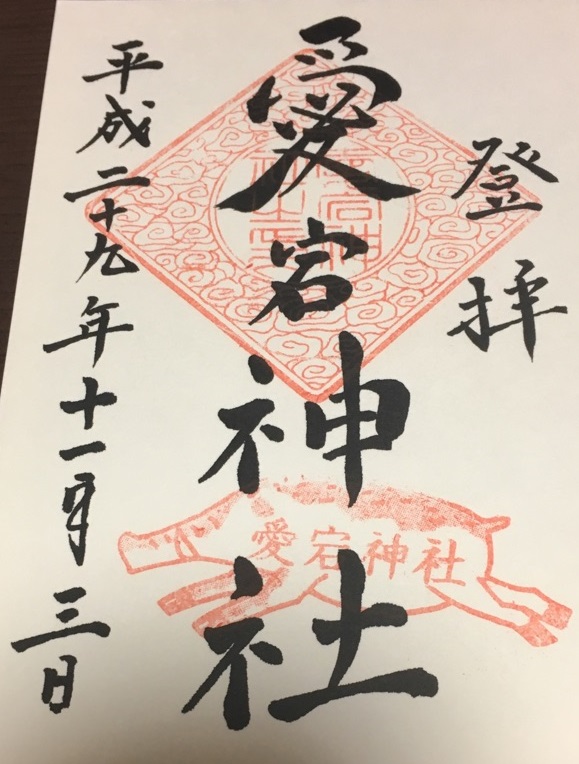 登拝
愛宕神社
愛宕神社
平成二十九年十一月三日